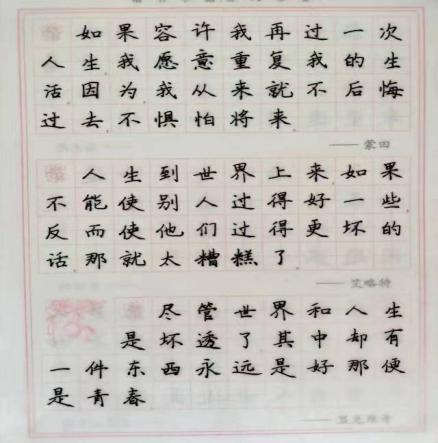 如果容许我再过一次
人生我愿意重复我的生
活因为我从来就不后悔
过去不惧怕将来
——蒙田
人生到世界上来如果
不能使别人过得好一些
反而使他们过得更坏的
话那就太糟糕了
——艾略特
尽管世界和人生
是坏透了其中却有
一件东西永远是好那便
是青春